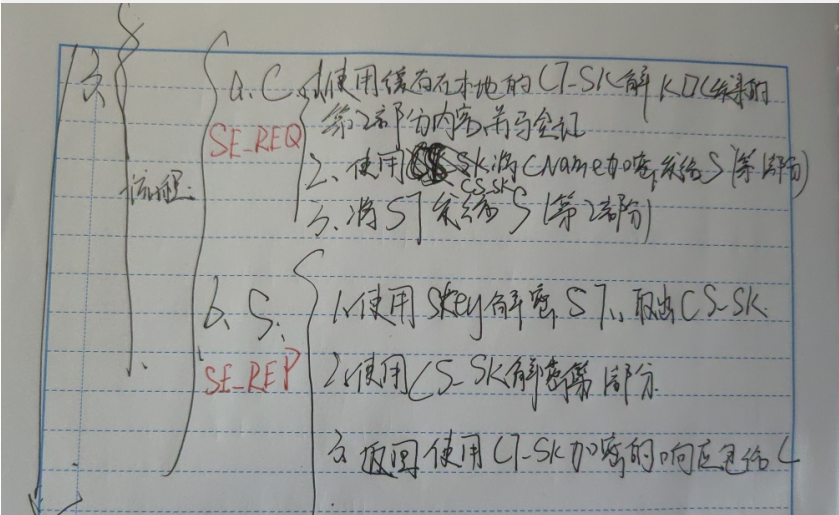 3.
流程:
a. C
SE_REQ
1.使用缓存在本地的CT-SK解KDC结果的
第2部分内容并与验证
2、使用SK将CName加密,发给S(第1部分)
CS_SK
3、将ST发给S(第2部分)
b、S.
SE_REP
1.使用SKey解密ST,取出CS-SK.
2.使用CS-SK解密第1部分
3.返回使用CT-SK加密的响应包给C